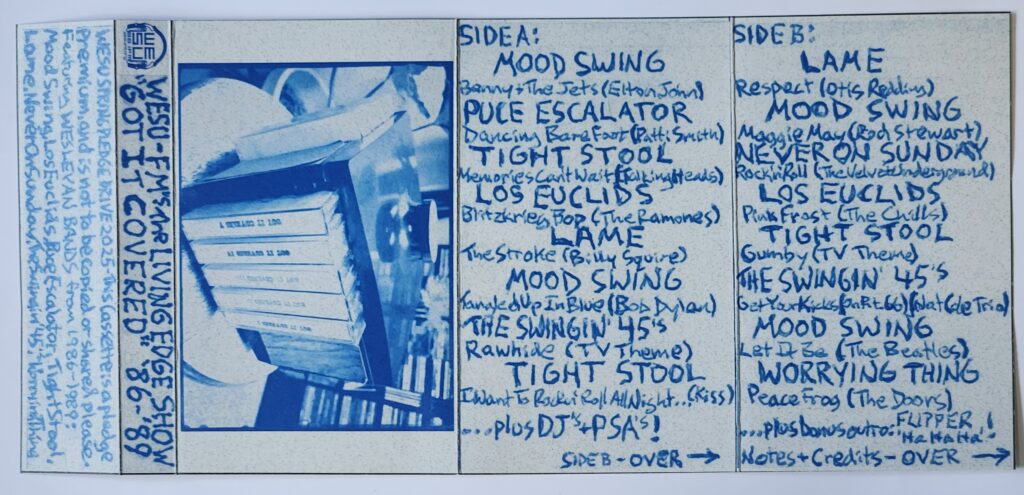 WESU SPRING PLEDGE DRIVE 2025-this cassette is a pledge
Premium, and is not to be copied or shared, please.
Featuring WESLEYAN BANDS from 1986-1989:
Mood Swing, Los Euclids, Puce Escalator, Tight Stool,
Lame, Never On Sunday, The Swingin' 45's, Worrying Thing
WESU
LIVINGEDGE SHOW
"GOT IT COVERED" '86-'89
GOT IT COVERED
GOT IT COVERED
GOT IT COVERED
GOT IT COVERED
GOT IT COVERED
SIDE A:
MOOD SWING
Benny + The Jets (Elton John)
PUCE ESCALATOR
Dancing Barefoot (Patti Smith)
TIGHT STOOL
Memories Can't Wait (Talking Heads)
LOS EUCLIDS
Blitzkrieg Bop (The Ramones)
LAME
The Stroke (Billy Squire)
MOOD SWING
Tangled Up In Blue (Bob Dylan)
THE SWINGIN' 45's
Rawhide (TV Theme)
TIGHT STOOL
I Want To Rock n' Roll All Night.. (Kiss)
...plus DJ's + PSA's!
SIDE B - OVER →
SIDE B:
LAME
Respect (Otis Redding)
MOOD SWING
Maggie May (Rod Stewart)
NEVER ON SUNDAY
Rock n' Roll (The Velvet Underground)
LOS EUCLIDS
Pink Frost (The Chills)
TIGHT STOOL
Gumby (TV Theme)
THE SWINGIN' 45's
Get Your Kicks (on Rt. 66) (Nat Cole Trio)
MOOD SWING
Let It Be (The Beatles)
WORRYING THING
Peace Frog (The Doors)
...plus bonus outro: FLIPPER, "Ha Ha Ha"!
Notes + Credits - OVER →